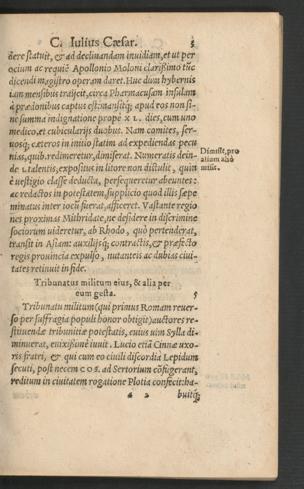 C. Iulius Cæsar. 5
dere statuit, & ad declinandam inuidiam, et ut per
ocium ac requiē Apollonio Moloni clarißimo tūc
dicendi magistro operam daret. Huc dum hybernis
iam mensibus traijcit, circa Pharmacusam insulam
à prædonibus captus est: mansitq; apud eos non si-
ne summa indignatione propè XL. dies, cum uno
medico, et cubicularijs duobus. Nam comites, ser-
uosq; cæteros in initio statim ad expediendas pecu
nias, quib. redimeretur, dimiserat. Numeratis dein-
de L talentis, expositus in litore non distulit, quin
è uestigio classe deducta, persequeretur abeuntes:
ac redactos in potestatem, supplicio quod illis sæpe
minatus inter iocū fuerat, afficeret. Vastante regio
nes proximas Mithridate, ne desidere in discrimine
sociorum uideretur, ab Rhodo, quò pertenderat,
transit in Asiam: auxilijsq; contractis, & præfecto
regis prouincia expulso, nutanteis ac dubias ciui-
tates retinuit in fide.
Tribunatus militum eius, & alia per
eum gesta. 5
Tribunatu militum (qui primus Romam reuer-
so per suffragia populi honor obtigit) auctores re-
stituendæ tribunitiæ potestatis, cuius uim Sylla di-
minuerat, enixißimè iuuit. Lucio etiā Cinnæ uxo-
ris fratri, & qui cum eo ciuili discordia Lepidum
secuti, post necem COS. ad Sertorium cōfugerant,
reditum in ciuitatem rogatione Plotia confecit: ha-
buitq;